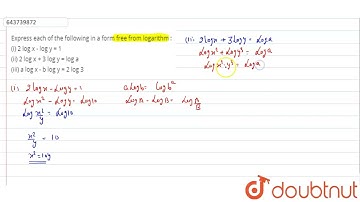 643739872
Express each of the following in a form free from logarithm :
(i) 2 log x - log y = 1
(ii) 2 log x + 3 log y = log a
(iii) a log x - b log y = 2 log 3
(i) 2 log x - log y = 1
log x² - log y = log 10
log x²/y = log 10
x²/y = 10
x² = 10y
a log b = log bᵃ
log A - log B = log A/B
(ii) 2 log x + 3 log y = log a
log x² + log y³ = log a
log x².y³ = log a
doubtnut